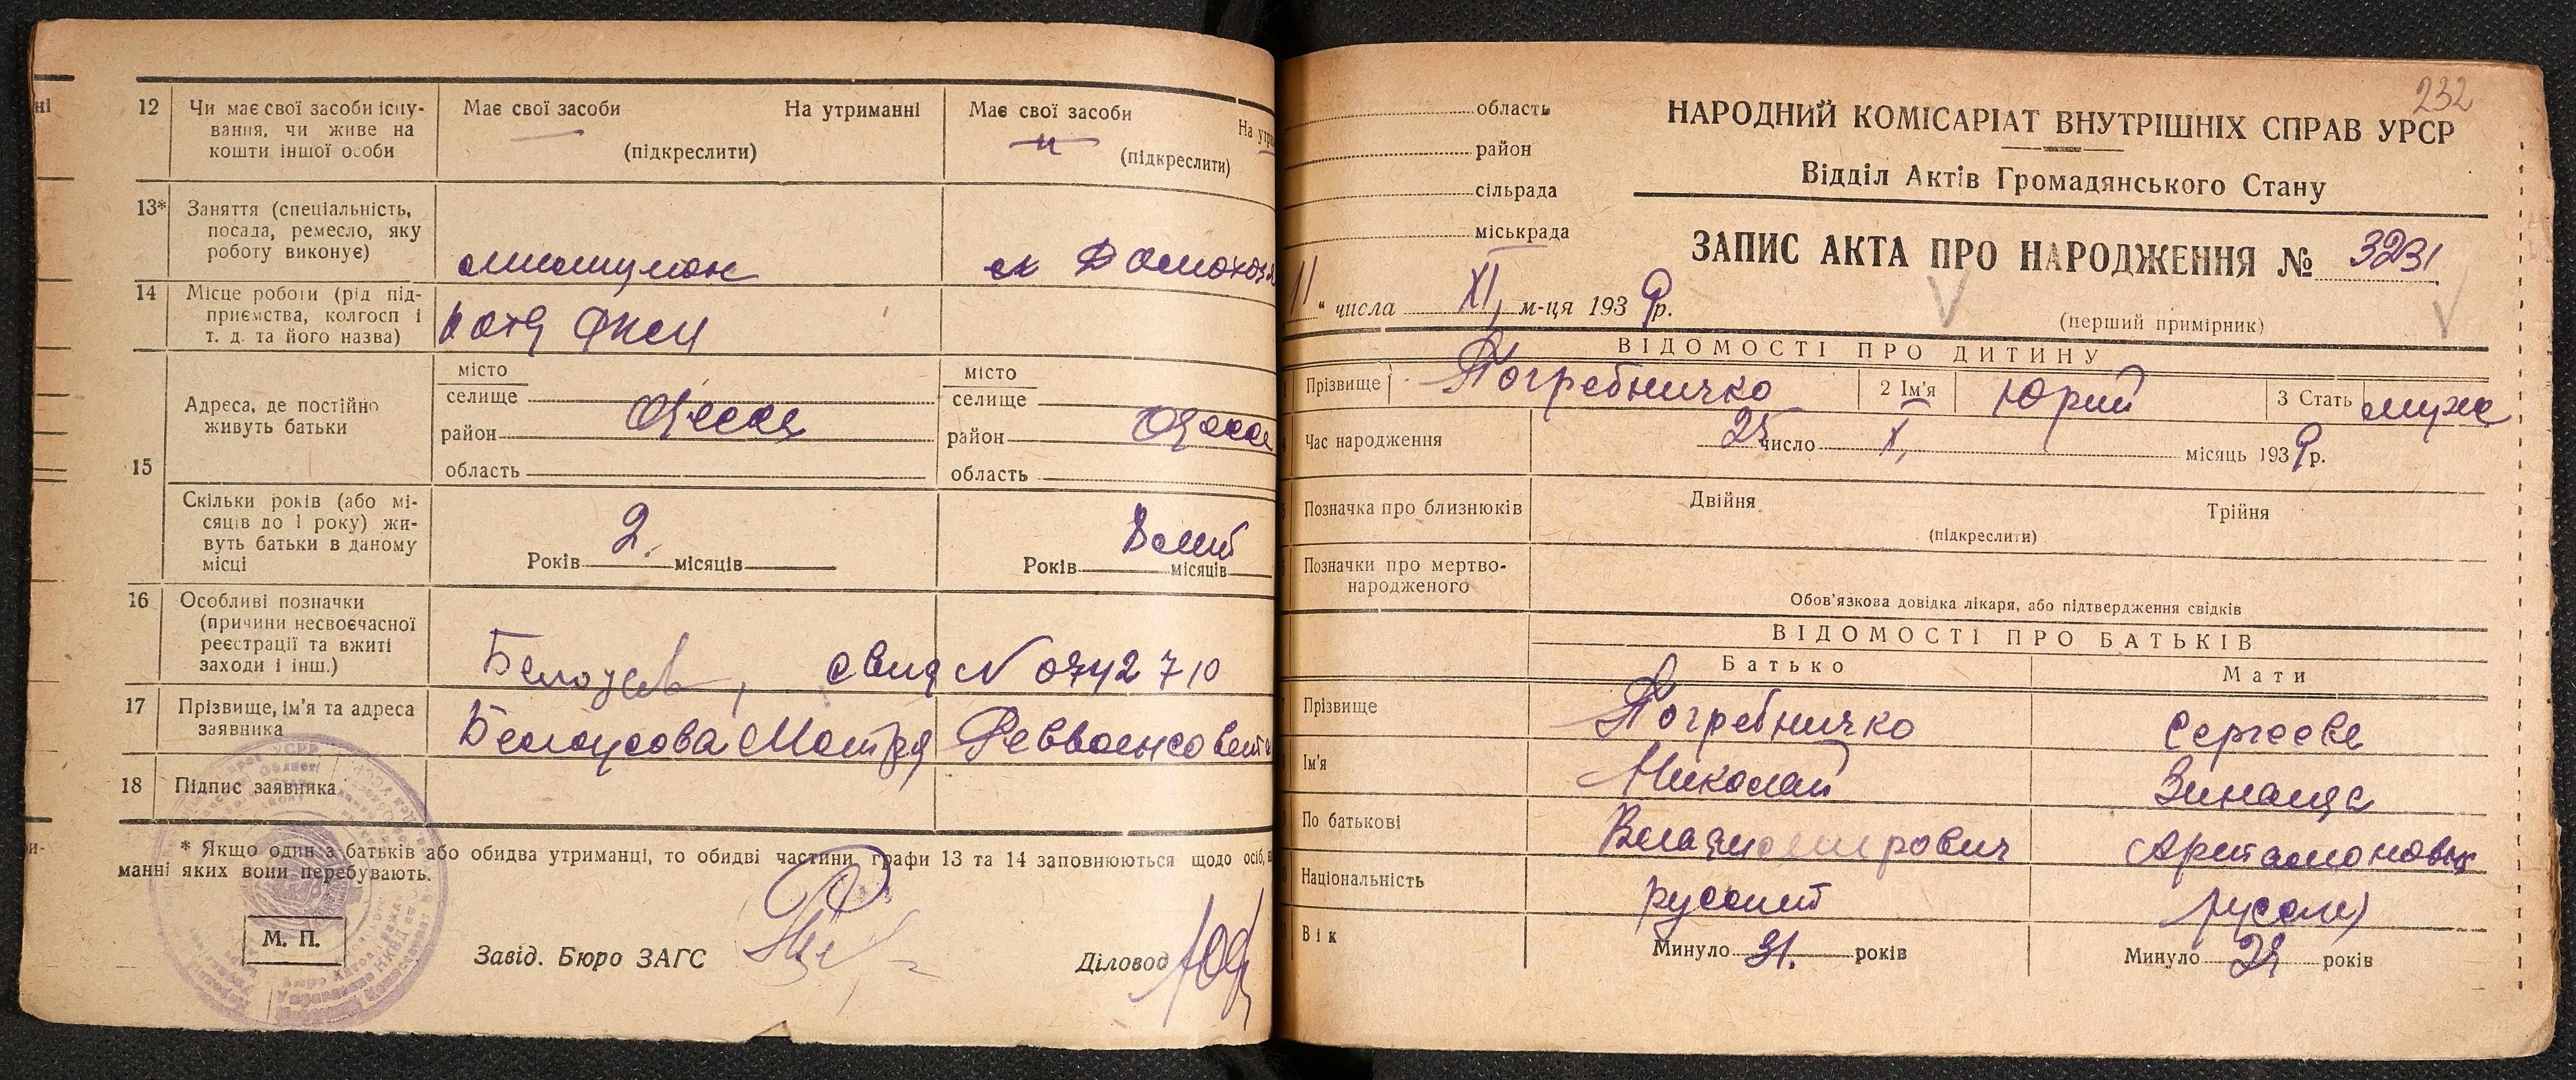 12 Чи має свої засоби існу-
вання, чи живе на
кошти іншої особи
Має свої засоби На утриманні
(підкреслити)
Має свої засоби
(підкреслити)
13* Заняття (спеціальність,
посада, ремесло, яку
роботу виконує)
14 Місце роботи (рід під-
приємства, колгосп і
т. д. та його назва)
15 Адреса, де постійно
живуть батьки
місто
селище
район
область
Одесса
місто
селище
район
область
Скільки років (або мі-
сяців до 1 року) жи-
вуть батьки в даному
місці
Років 2. місяців
Років місяців
16 Особливі позначки
(причини несвоєчасної
реєстрації та вжиті
заходи і інш.)
N 0742710
17 Прізвище, ім'я та адреса
заявника
Белоусова
18 Підпис заявника
* Якщо один з батьків або обидва утриманці, то обидві частини графи 13 та 14 заповнюються щодо осіб, в
манні яких вони перебувають.
М. П.
Завід. Бюро ЗАГС
Діловод
232
область
район
сільрада
міськрада
НАРОДНИЙ КОМІСАРІАТ ВНУТРІШНІХ СПРАВ УРСР
Відділ Актів Громадянського Стану
ЗАПИС АКТА ПРО НАРОДЖЕННЯ № 3231
11 " числа XI, м-ця 1939 р.
(перший примірник)
ВІДОМОСТІ ПРО ДИТИНУ
Прізвище Погребничко 2 Ім'я Юрий 3 Стать муже
Час народження 25 число X, місяць 1939 р.
Позначка про близнюків Двійня Трійня
(підкреслити)
Позначки про мертво-
народженого
Обов'язкова довідка лікаря, або підтвердження свідків
ВІДОМОСТІ ПРО БАТЬКІВ
Батько Мати
Прізвище Погребничко Сергеева
Ім'я Николай Зинаида
По батькові Владимирович Артамоновна
Національність русский
Вік Минуло 31. років Минуло років